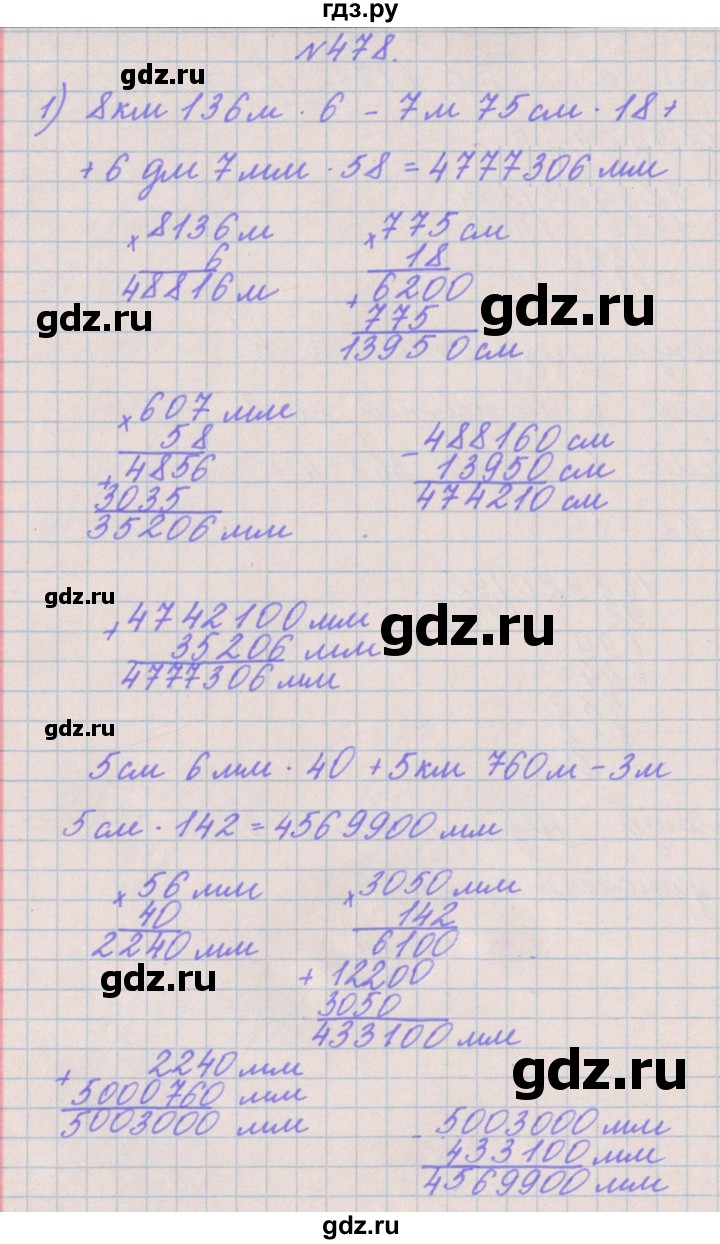 гдз.ру
№478.
gdz.ru
1) 8км 136м · 6 - 7м 75см · 18+
+ 6 дм 7мм · 58 = 4777306 мм
× 8136 м
6
48816 м
× 775 см
18
+ 6200
775
13950 см
gdz.ru
gdz.ru
× 607 мм
58
+ 4856
3035
35206 мм
- 488160 см
13950 см
474210 см
gdz.ru
+ 4742100 мм
35206 мм
4777306 мм
gdz.ru
gdz.ru
5см 6мм · 40 + 5км 760м - 3м
5см · 142 = 4569900 мм
× 56 мм
40
2240 мм
× 3050 мм
142
6100
+ 12200
3050
433100 мм
gdz.ru
+ 2240 мм
5000760 мм
5003000 мм
gdz.ru
- 5003000 мм
433100 мм
4569900 мм
gdz.ru